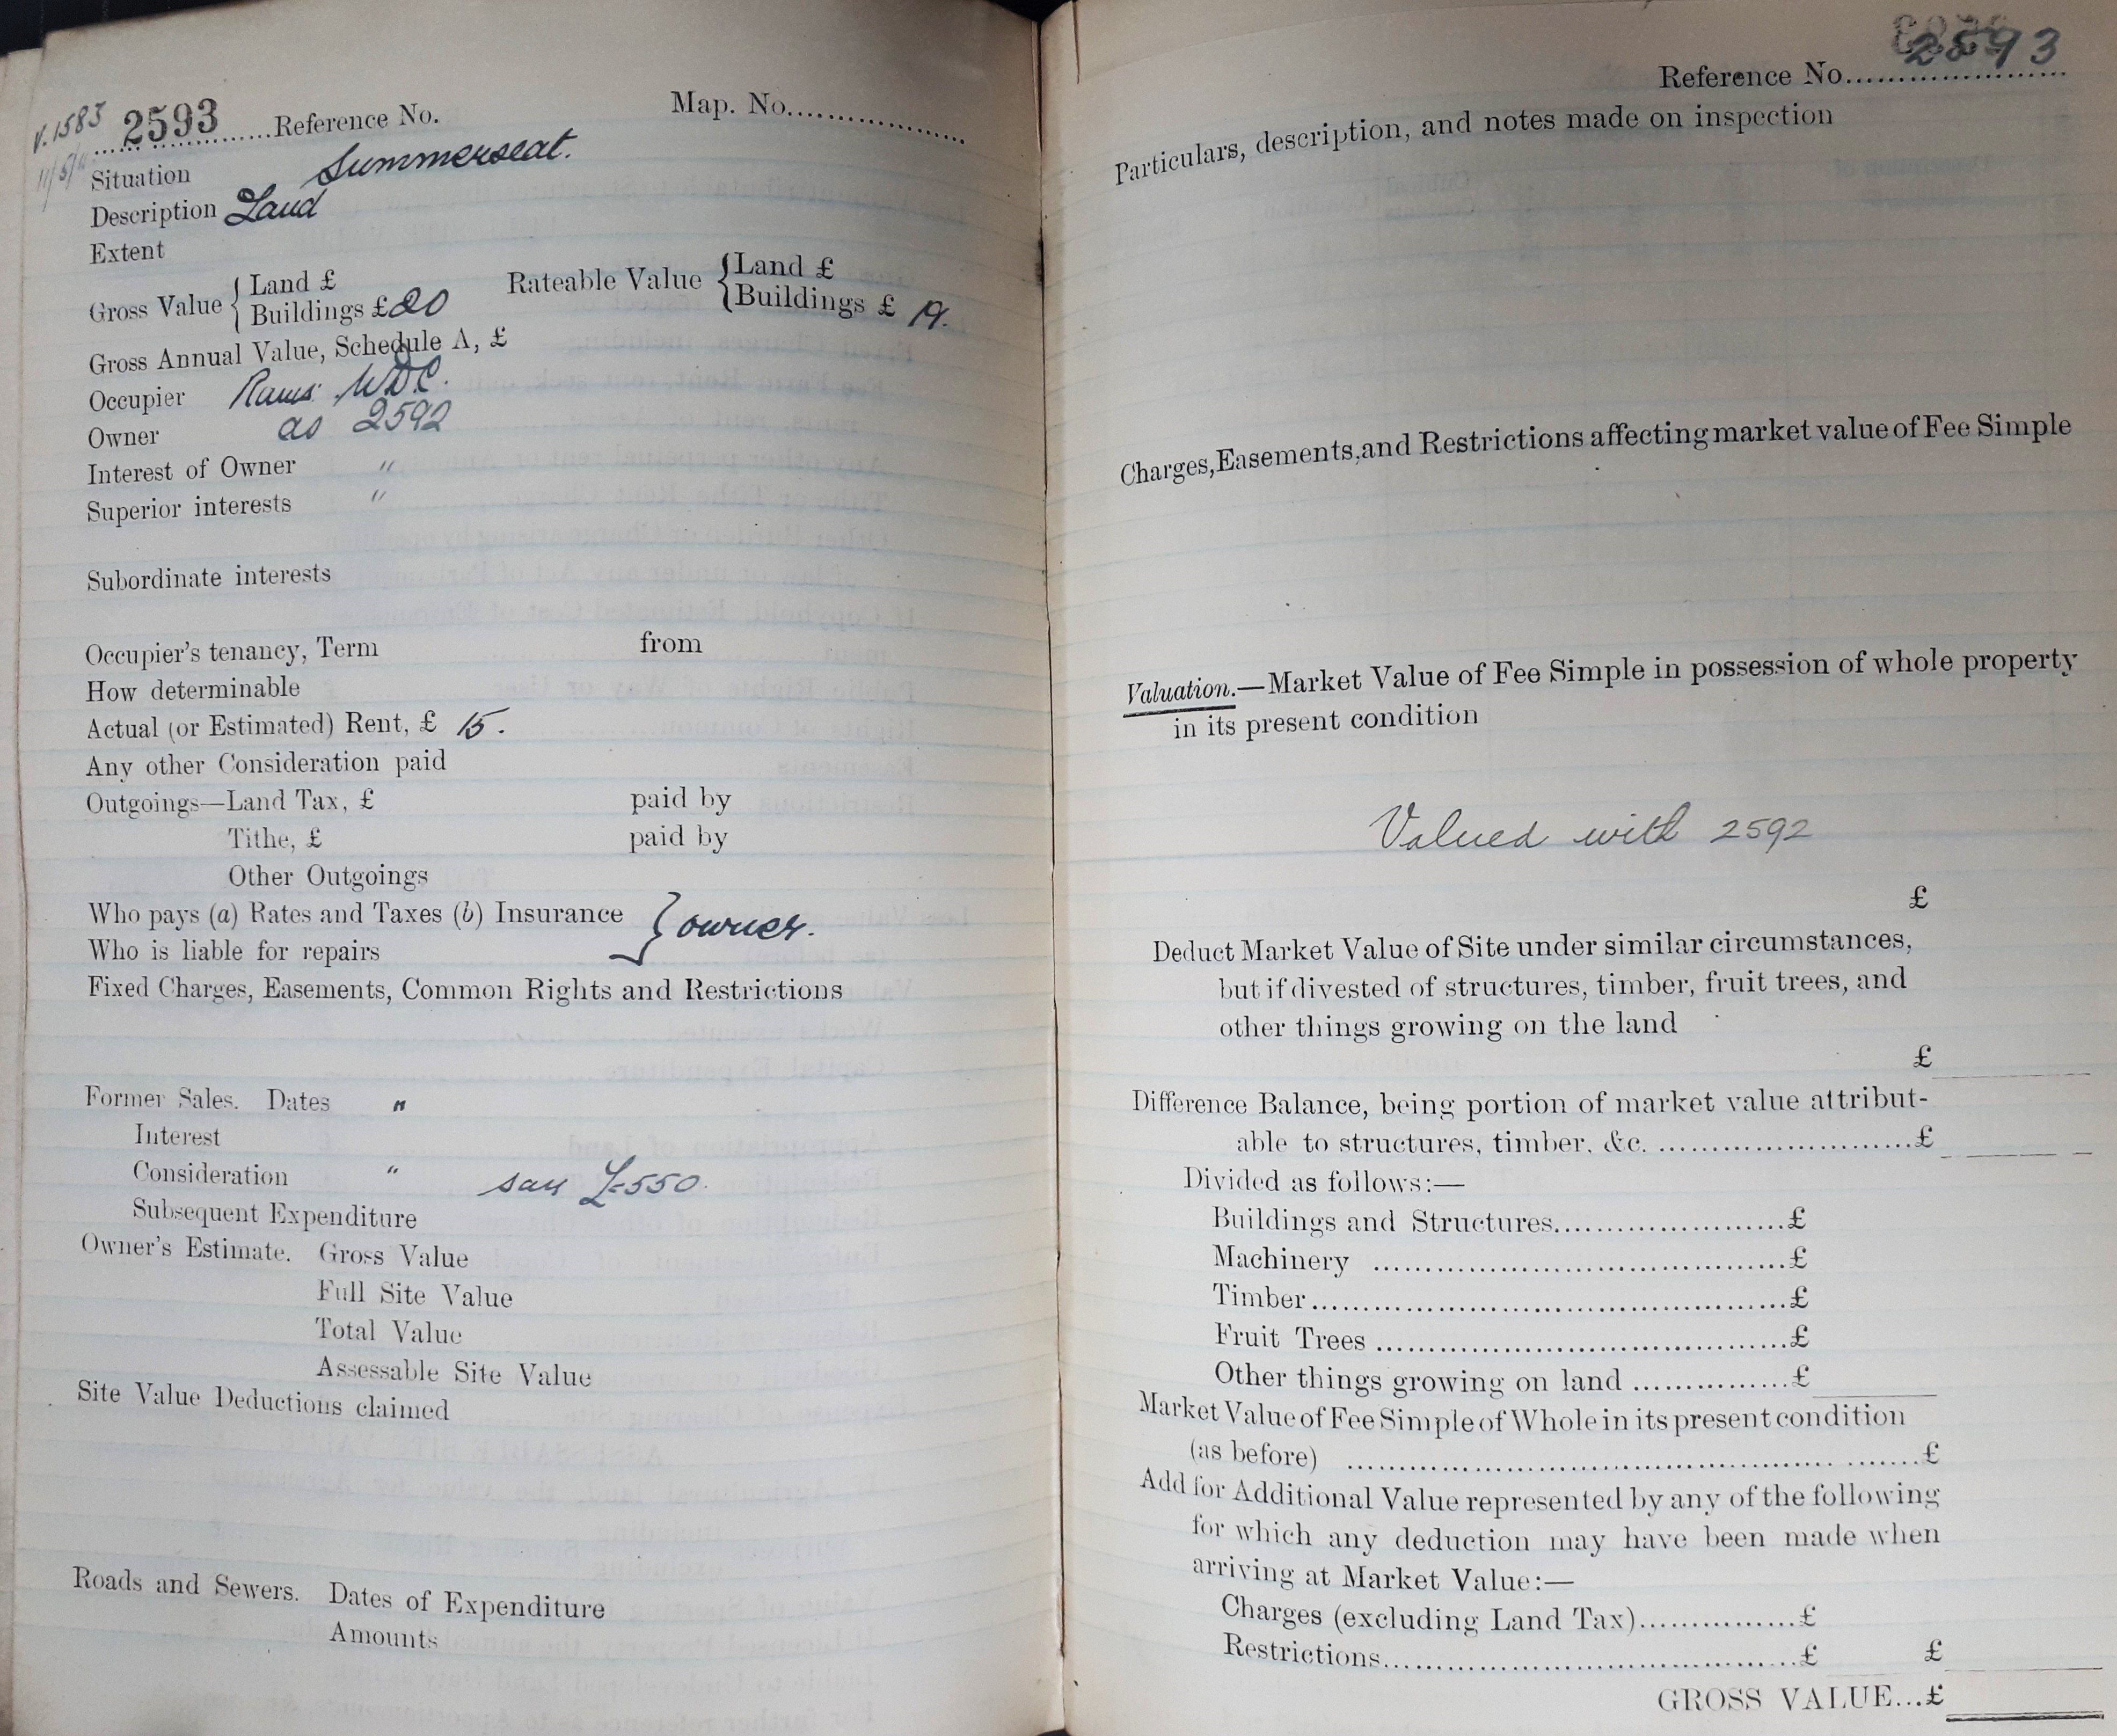 V.1583
2593 ......Reference No. Map. No.....................
11/5/
Situation Summerseat.
Description Land
Extent
Gross Value { Land £
Buildings £ 20
Rateable Value { Land £
Buildings £ 19.
Gross Annual Value, Schedule A, £
Occupier Rams: UDC.
Owner as 2592
Interest of Owner "
Superior interests "
Subordinate interests
Occupier's tenancy, Term from
How determinable
Actual (or Estimated) Rent, £ 15.
Any other Consideration paid
Outgoings—Land Tax, £ paid by
Tithe, £ paid by
Other Outgoings
Who pays (a) Rates and Taxes (b) Insurance
Who is liable for repairs } owner.
Fixed Charges, Easements, Common Rights and Restrictions
Former Sales. Dates "
Interest
Consideration " say £550.
Subsequent Expenditure
Owner's Estimate. Gross Value
Full Site Value
Total Value
Assessable Site Value
Site Value Deductions claimed
Roads and Sewers. Dates of Expenditure
Amounts
Reference No. 2593
Particulars, description, and notes made on inspection
Charges, Easements, and Restrictions affecting market value of Fee Simple
Valuation.—Market Value of Fee Simple in possession of whole property
in its present condition
Valued with 2592
£
Deduct Market Value of Site under similar circumstances,
but if divested of structures, timber, fruit trees, and
other things growing on the land
£
Difference Balance, being portion of market value attribut-
able to structures, timber, &c. ........................£
Divided as follows:—
Buildings and Structures......................£
Machinery ......................................£
Timber............................................£
Fruit Trees ......................................£
Other things growing on land ...............£
Market Value of Fee Simple of Whole in its present condition
(as before) ......................................................£
Add for Additional Value represented by any of the following
for which any deduction may have been made when
arriving at Market Value:—
Charges (excluding Land Tax)...............£
Restrictions.......................................£ £
GROSS VALUE...£